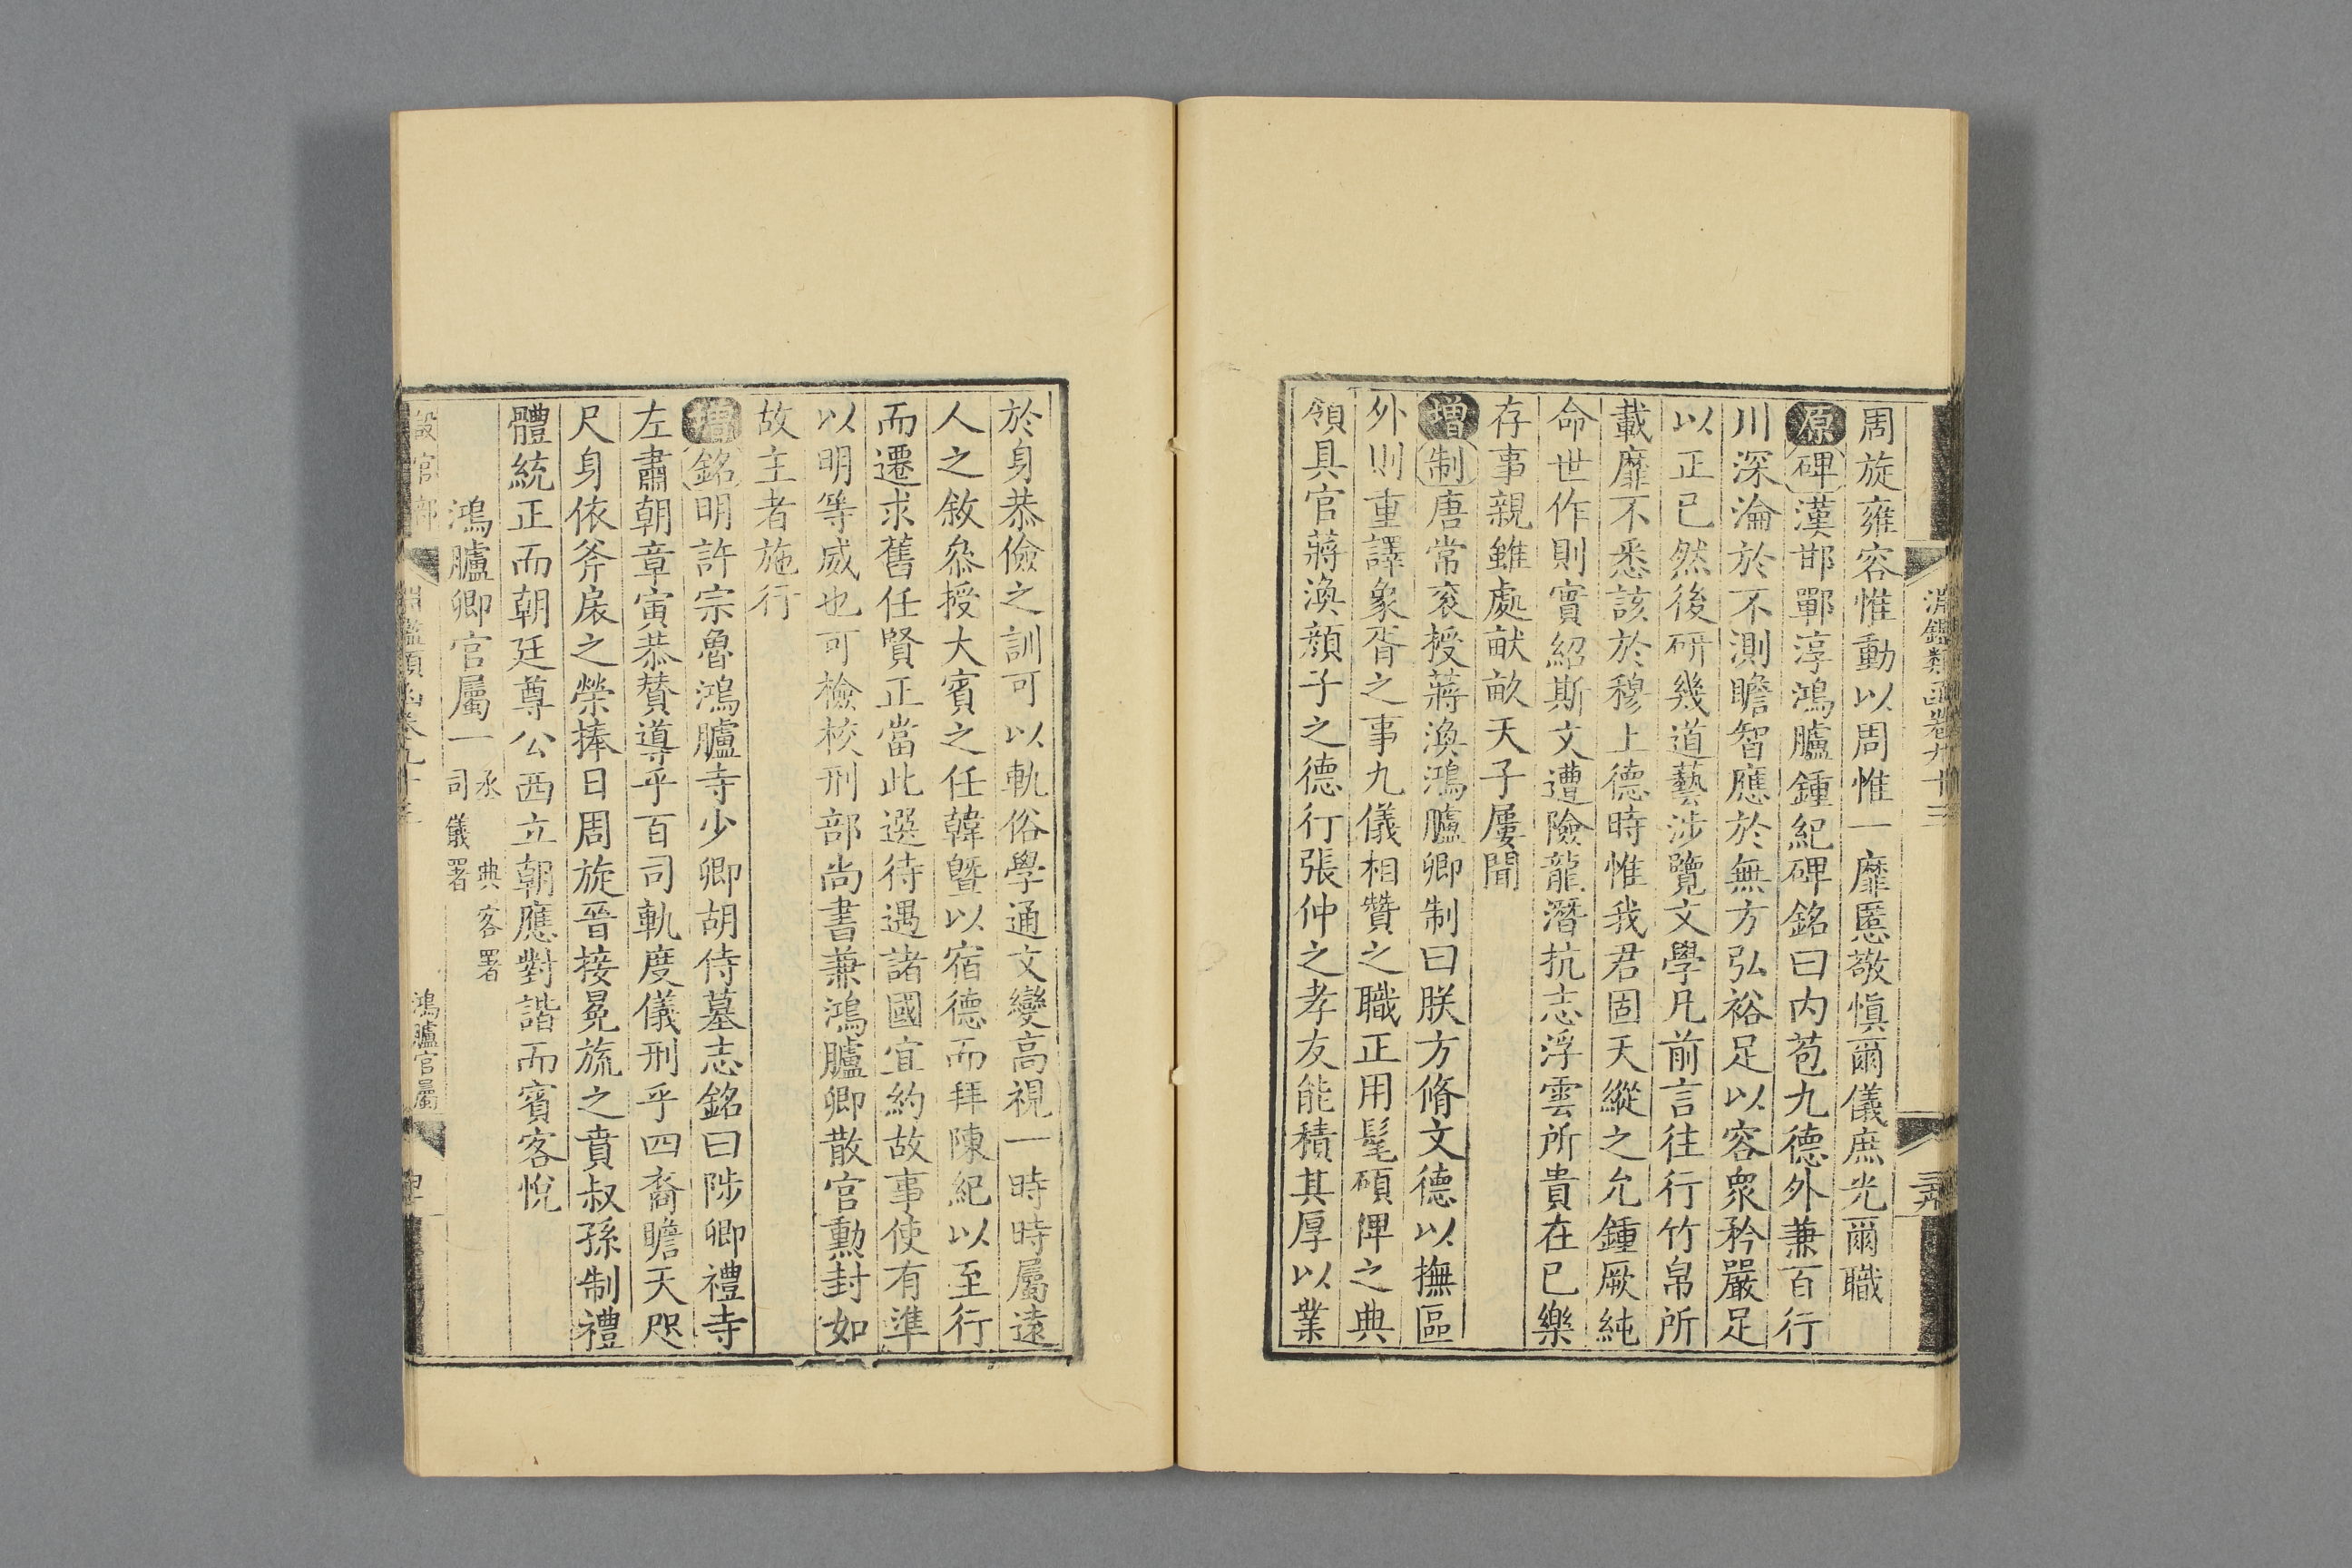 淵鑑類函卷九十三
周旋雍容惟動以周惟一靡慝敬慎爾儀庶光爾職
原碑漢邯鄲淳鴻臚鍾紀碑銘曰内苞九德外兼百行
川深淪於不測瞻智應於無方弘裕足以容衆矜嚴足
以正已然後研幾道藝涉覽文學凡前言往行竹帛所
載靡不悉該於穆上德時惟我君固天縱之允鍾厥純
命世作則實紹斯文遭險龍潛抗志浮雲所貴在已樂
存事親雖處畎畝天子屢聞
増制唐常衮授蔣渙鴻臚卿制曰朕方脩文德以撫區
外則重譯象胥之事九儀相贊之職正用髦碩俾之典
領具官蔣渙顔子之德行張仲之孝友能積其厚以業
於身恭儉之訓可以軌俗學通文變高視一時時屬遠
人之敘叅授大賓之任韓暨以宿德而拜陳紀以至行
而遷求舊任賢正當此選待遇諸國宜約故事使有準
以明等威也可檢校刑部尚書兼鴻臚卿散官勳封如
故主者施行
増銘明許宗魯鴻臚寺少卿胡侍墓志銘曰陟卿禮寺
左肅朝章寅恭賛導乎百司軌度儀刑乎四裔瞻天咫
尺身依斧扆之榮捧日周旋晉接冕旒之賁叔孫制禮
體統正而朝廷尊公西立朝應對諧而賓客悅
鴻臚卿官屬一 丞 典客署 司儀署
設官部 淵鑑類函卷九十三 鴻臚官屬